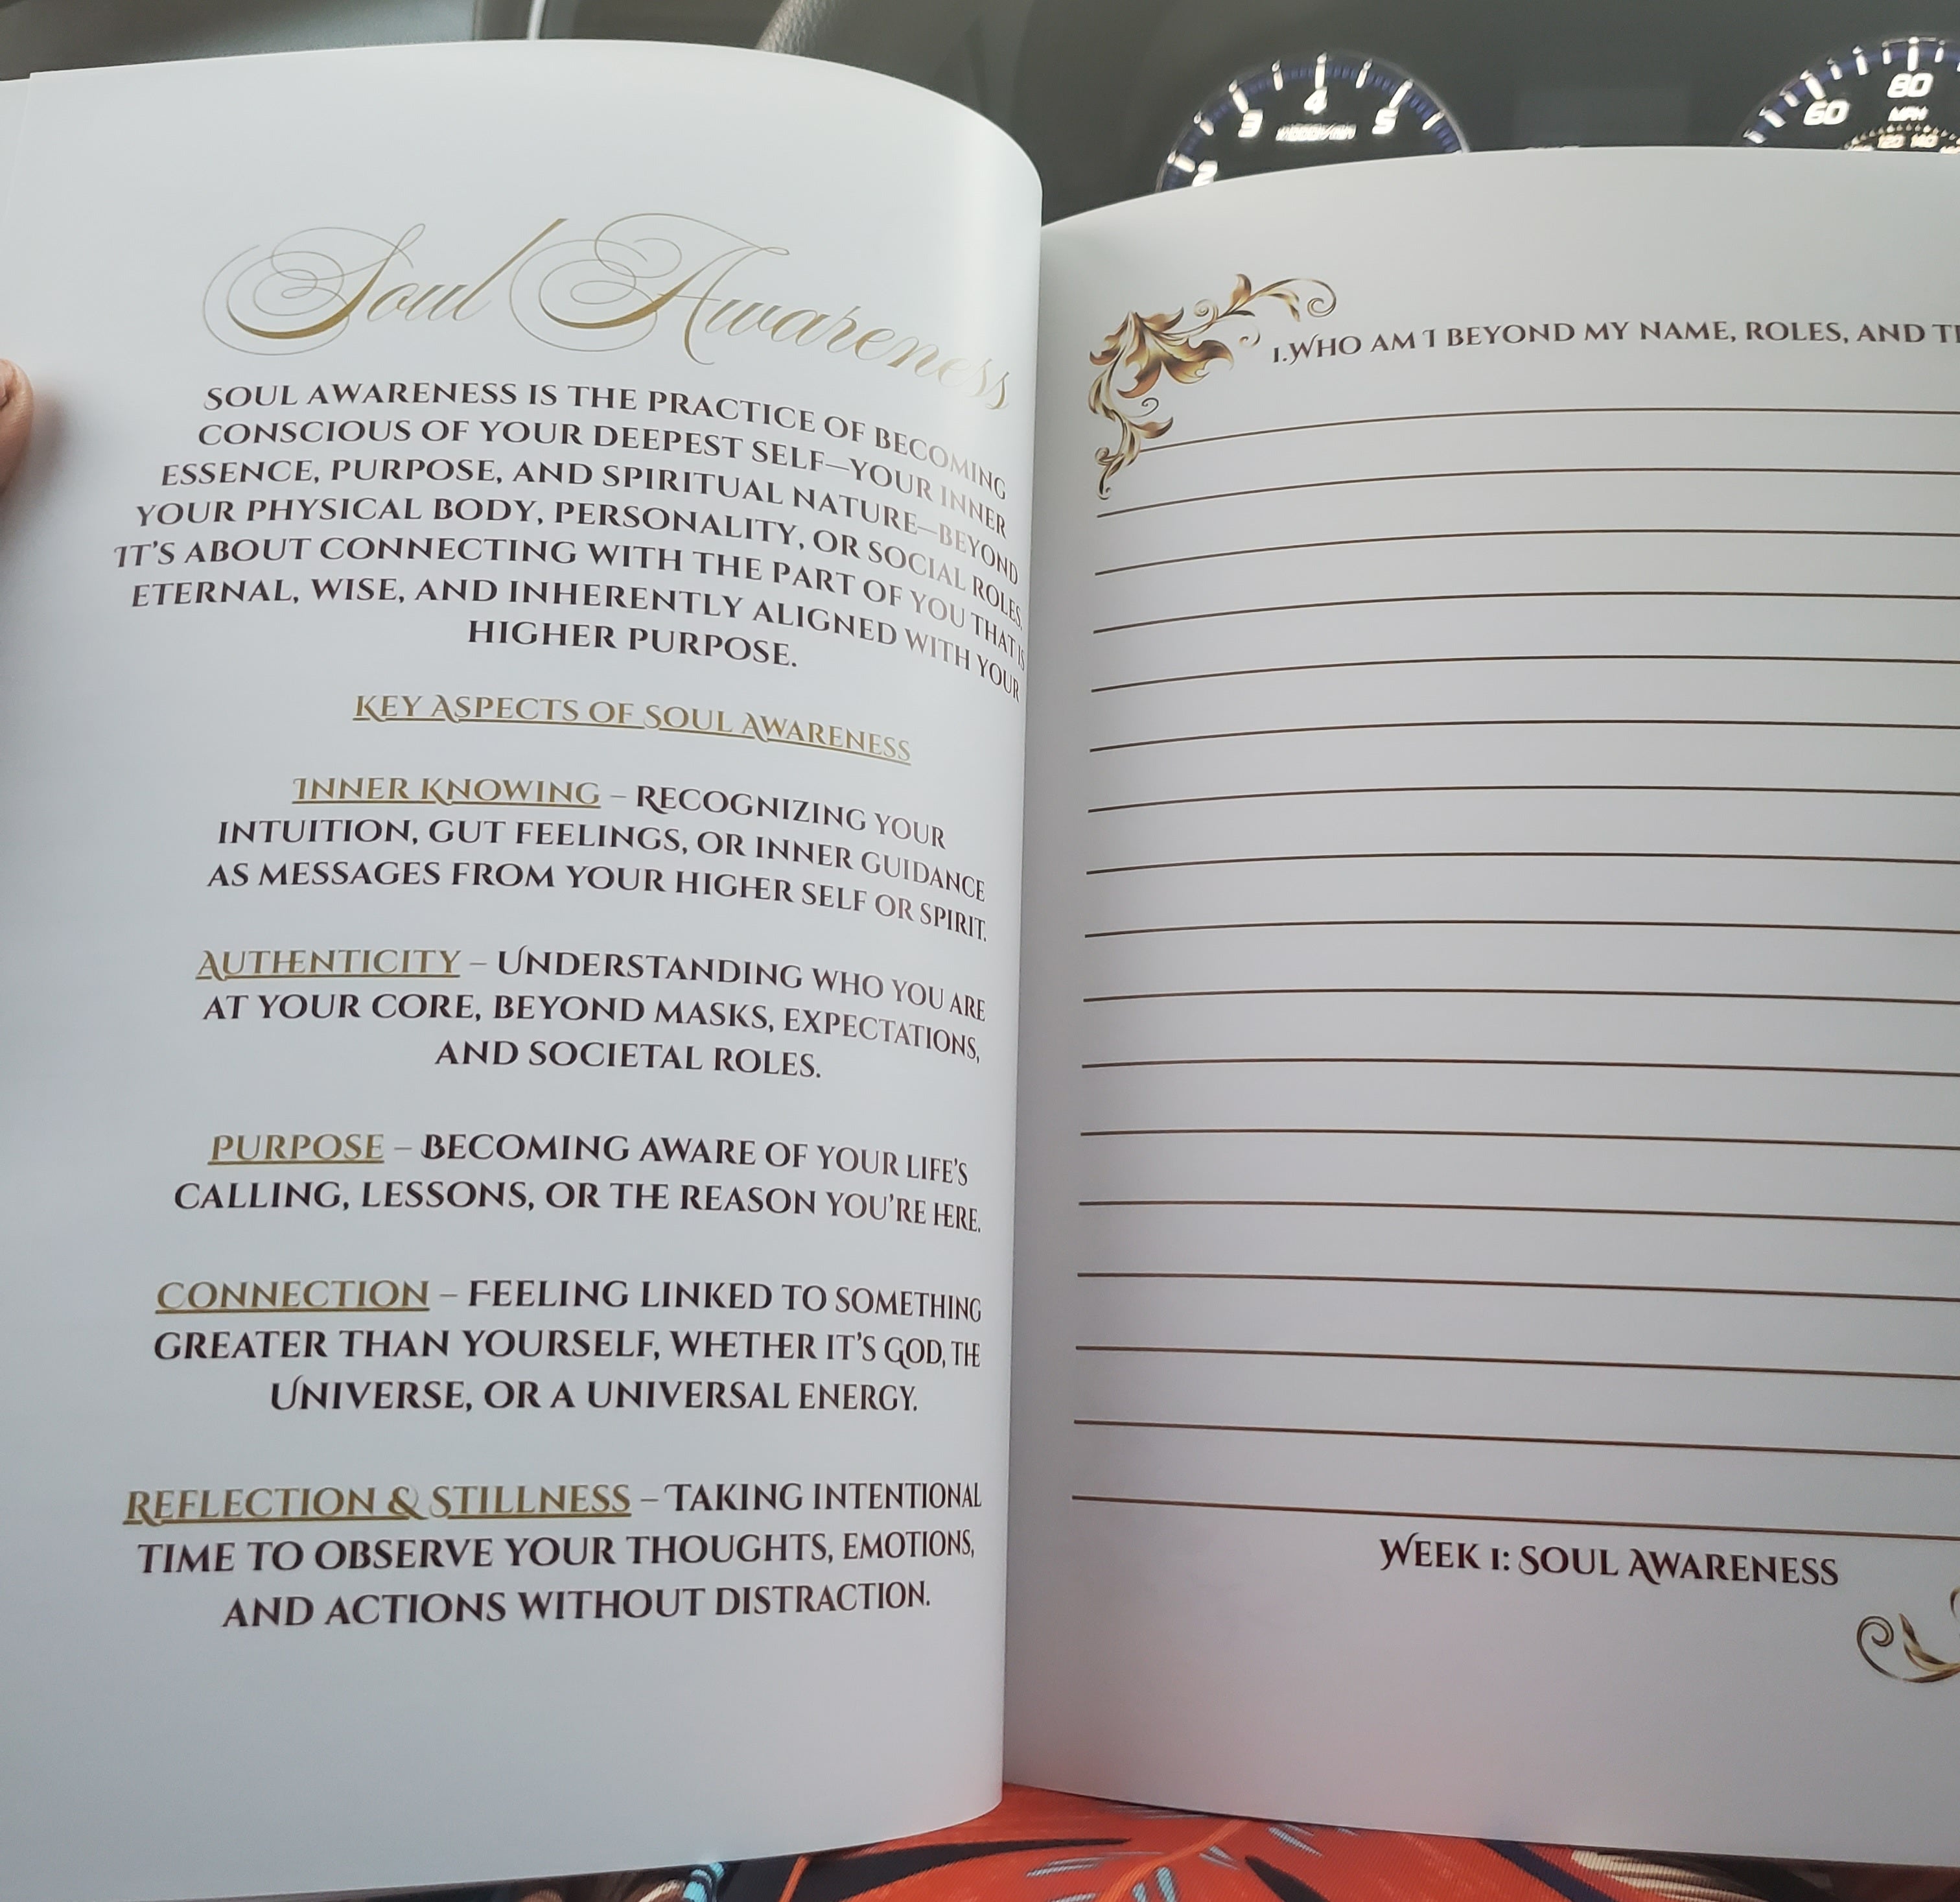 Soul Awareness
SOUL AWARENESS IS THE PRACTICE OF BECOMING
CONSCIOUS OF YOUR DEEPEST SELF—YOUR INNER
ESSENCE, PURPOSE, AND SPIRITUAL NATURE—BEYOND
YOUR PHYSICAL BODY, PERSONALITY, OR SOCIAL ROLES.
IT'S ABOUT CONNECTING WITH THE PART OF YOU THAT IS
ETERNAL, WISE, AND INHERENTLY ALIGNED WITH YOUR
HIGHER PURPOSE.
KEY ASPECTS OF SOUL AWARENESS
INNER KNOWING – RECOGNIZING YOUR
INTUITION, GUT FEELINGS, OR INNER GUIDANCE
AS MESSAGES FROM YOUR HIGHER SELF OR SPIRIT.
AUTHENTICITY – UNDERSTANDING WHO YOU ARE
AT YOUR CORE, BEYOND MASKS, EXPECTATIONS,
AND SOCIETAL ROLES.
PURPOSE – BECOMING AWARE OF YOUR LIFE'S
CALLING, LESSONS, OR THE REASON YOU'RE HERE.
CONNECTION – FEELING LINKED TO SOMETHING
GREATER THAN YOURSELF, WHETHER IT'S GOD, THE
UNIVERSE, OR A UNIVERSAL ENERGY.
REFLECTION & STILLNESS – TAKING INTENTIONAL
TIME TO OBSERVE YOUR THOUGHTS, EMOTIONS,
AND ACTIONS WITHOUT DISTRACTION.
1.WHO AM I BEYOND MY NAME, ROLES, AND
WEEK 1: SOUL AWARENESS
2 3 4 5
60 80
MPH
120 140